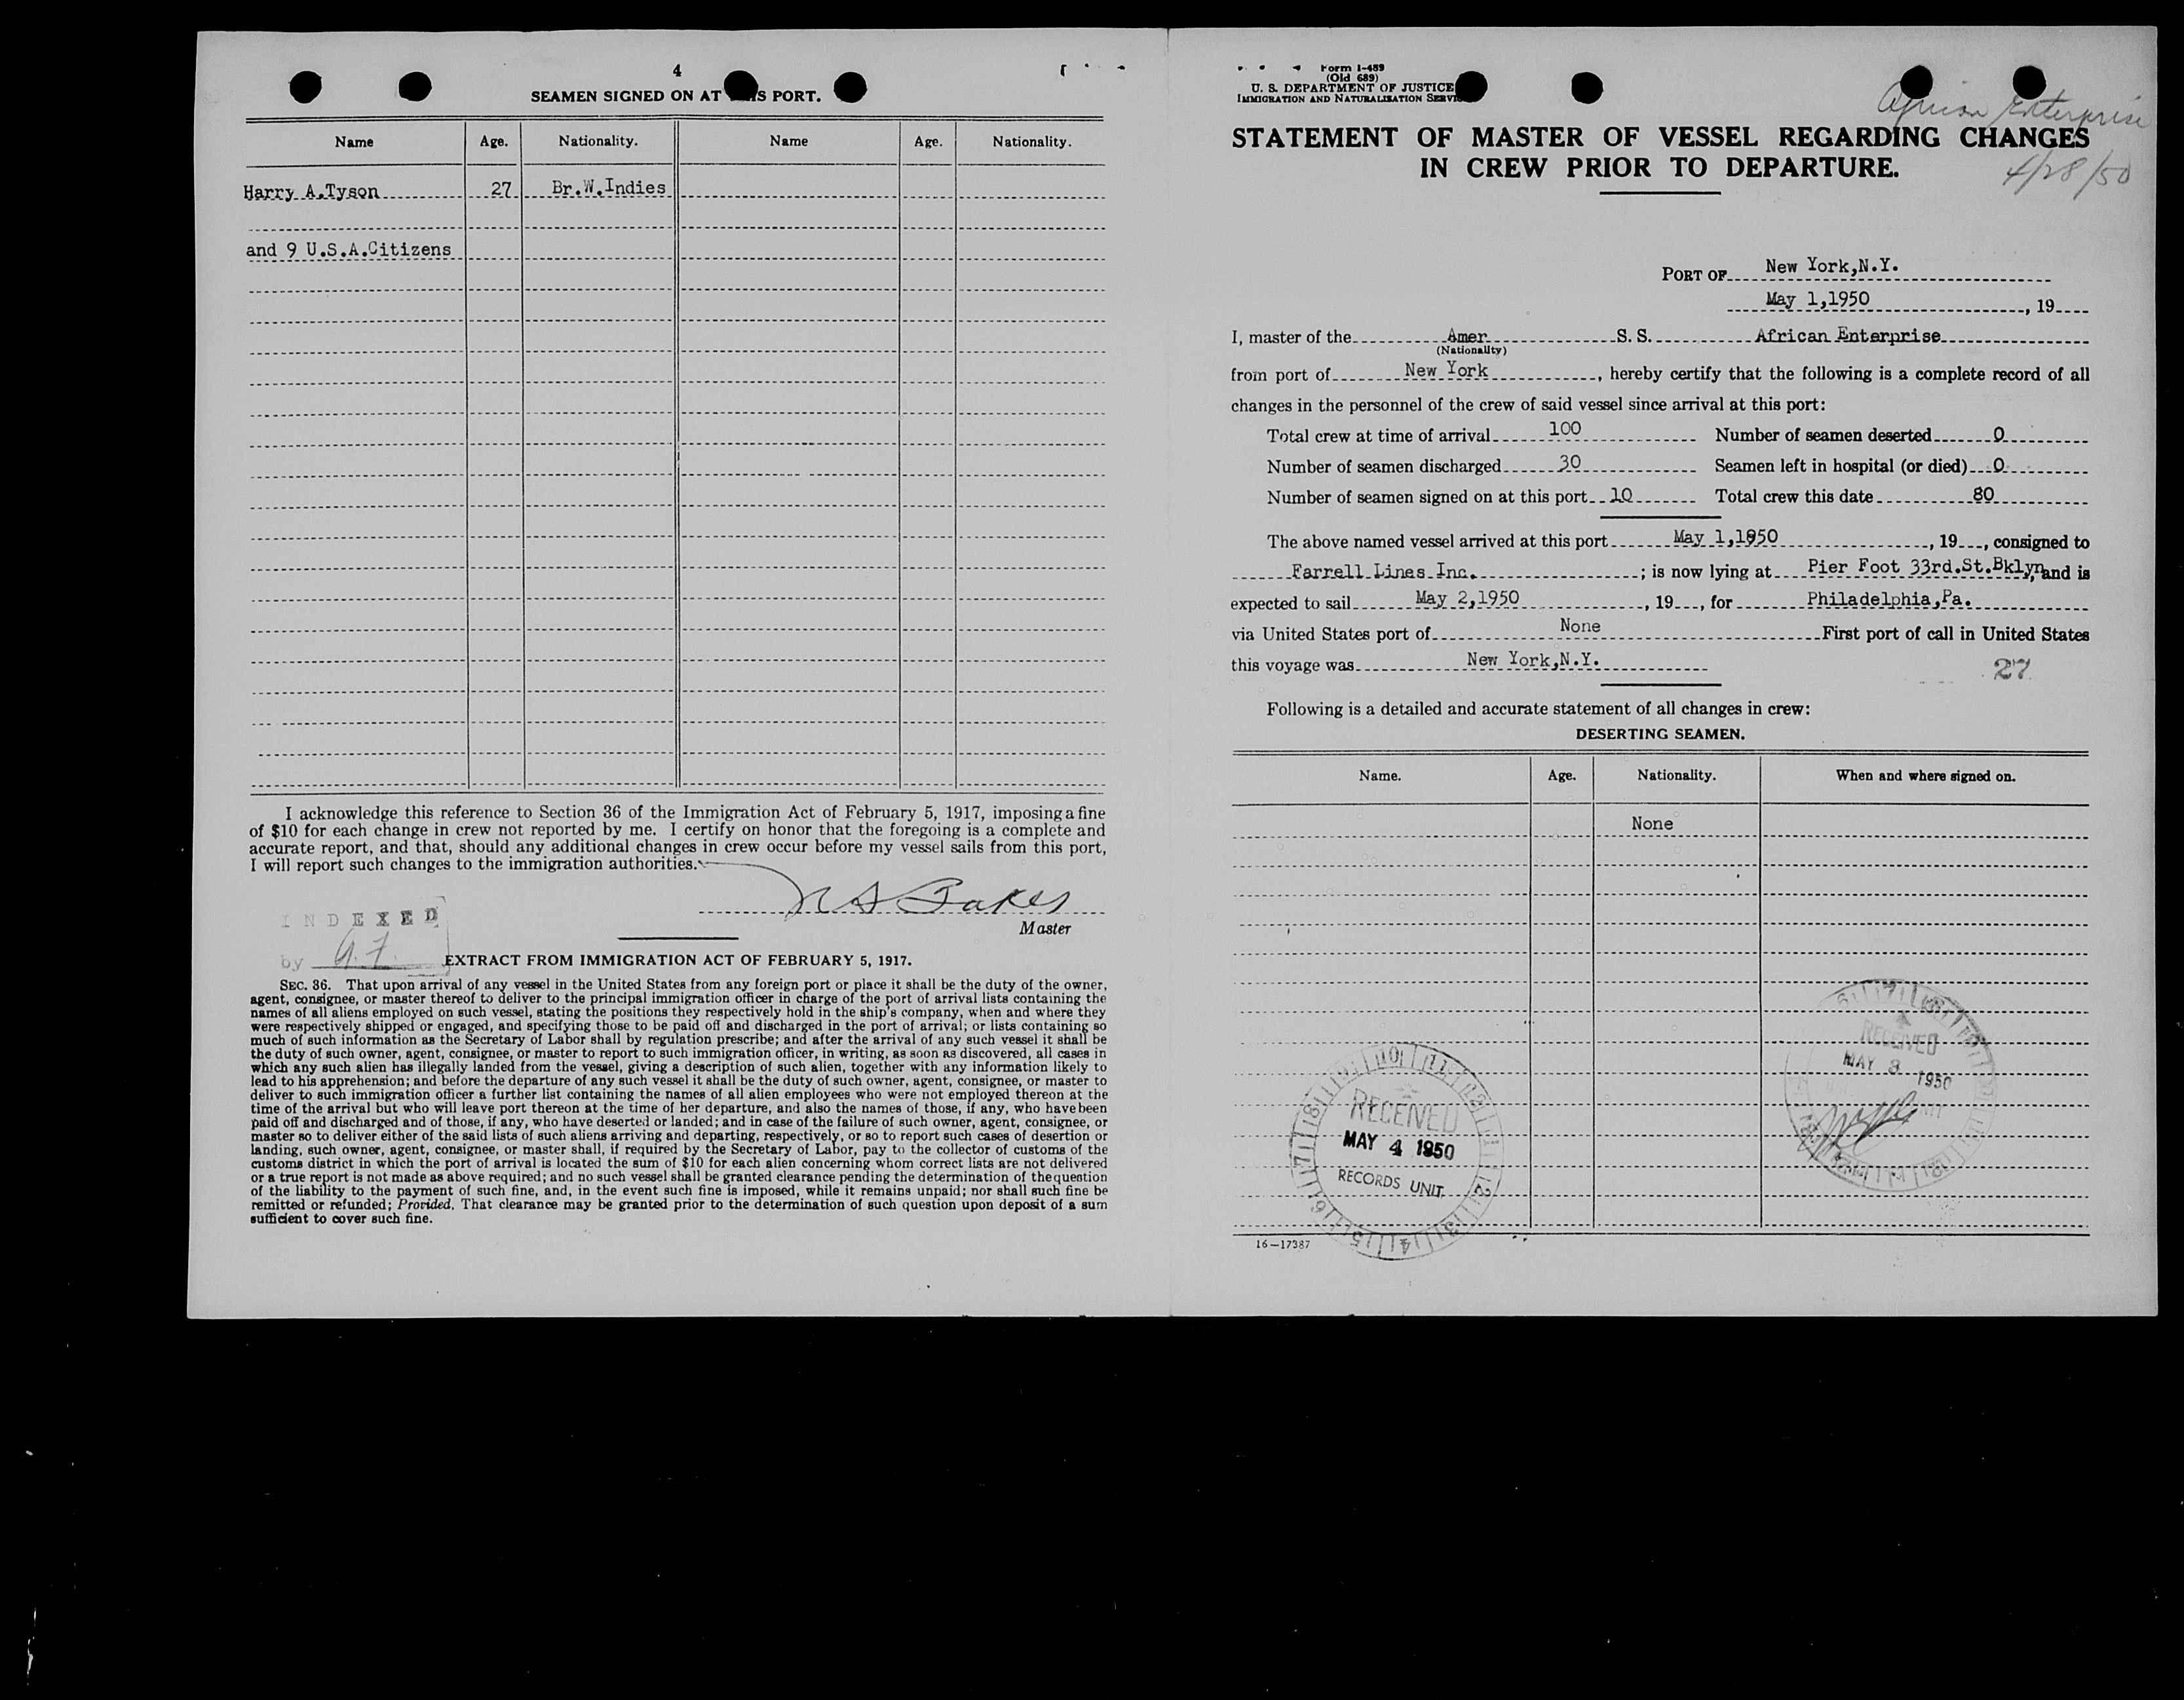 4
SEAMEN SIGNED ON AT THIS PORT.
Name Age. Nationality. Name Age. Nationality.
Harry A.Tyson 27 Br.W.Indies
and 9 U.S.A.Citizens
I acknowledge this reference to Section 36 of the Immigration Act of February 5, 1917, imposing a fine
of $10 for each change in crew not reported by me. I certify on honor that the foregoing is a complete and
accurate report, and that, should any additional changes in crew occur before my vessel sails from this port,
I will report such changes to the immigration authorities.
Master
INDEXED
by
EXTRACT FROM IMMIGRATION ACT OF FEBRUARY 5, 1917.
SEC. 36. That upon arrival of any vessel in the United States from any foreign port or place it shall be the duty of the owner,
agent, consignee, or master thereof to deliver to the principal immigration officer in charge of the port of arrival lists containing the
names of all aliens employed on such vessel, stating the positions they respectively hold in the ship's company, when and where they
were respectively shipped or engaged, and specifying those to be paid off and discharged in the port of arrival; or lists containing so
much of such information as the Secretary of Labor shall by regulation prescribe; and after the arrival of any such vessel it shall be
the duty of such owner, agent, consignee, or master to report to such immigration officer, in writing, as soon as discovered, all cases in
which any such alien has illegally landed from the vessel, giving a description of such alien, together with any information likely to
lead to his apprehension; and before the departure of any such vessel it shall be the duty of such owner, agent, consignee, or master to
deliver to such immigration officer a further list containing the names of all alien employees who were not employed thereon at the
time of the arrival but who will leave port thereon at the time of her departure, and also the names of those, if any, who have been
paid off and discharged and of those, if any, who have deserted or landed; and in case of the failure of such owner, agent, consignee, or
master so to deliver either of the said lists of such aliens arriving and departing, respectively, or so to report such cases of desertion or
landing, such owner, agent, consignee, or master shall, if required by the Secretary of Labor, pay to the collector of customs of the
customs district in which the port of arrival is located the sum of $10 for each alien concerning whom correct lists are not delivered
or a true report is not made as above required; and no such vessel shall be granted clearance pending the determination of the question
of the liability to the payment of such fine, and, in the event such fine is imposed, while it remains unpaid; nor shall such fine be
remitted or refunded; Provided, That clearance may be granted prior to the determination of such question upon deposit of a sum
sufficient to cover such fine.
Form I-489
(Old 689)
U. S. DEPARTMENT OF JUSTICE
IMMIGRATION AND NATURALIZATION SERVICE
African Enterprise
4/28/50
STATEMENT OF MASTER OF VESSEL REGARDING CHANGES
IN CREW PRIOR TO DEPARTURE.
PORT OF New York,N.Y.
May 1,1950 , 19
I, master of the Amer S. S. African Enterprise
(Nationality)
from port of New York , hereby certify that the following is a complete record of all
changes in the personnel of the crew of said vessel since arrival at this port:
Total crew at time of arrival 100 Number of seamen deserted 0
Number of seamen discharged 30 Seamen left in hospital (or died) 0
Number of seamen signed on at this port 10 Total crew this date 80
The above named vessel arrived at this port May 1,1950 , 19 , consigned to
Farrell Lines Inc. ; is now lying at Pier Foot 33rd.St.Bklyn, and is
expected to sail May 2,1950 , 19 , for Philadelphia,Pa.
via United States port of None First port of call in United States
this voyage was New York,N.Y.
27
Following is a detailed and accurate statement of all changes in crew:
DESERTING SEAMEN.
Name. Age. Nationality. When and where signed on.
None
RECEIVED
MAY 3 1950
RECEIVED
MAY 4 1950
RECORDS UNIT
16—17387